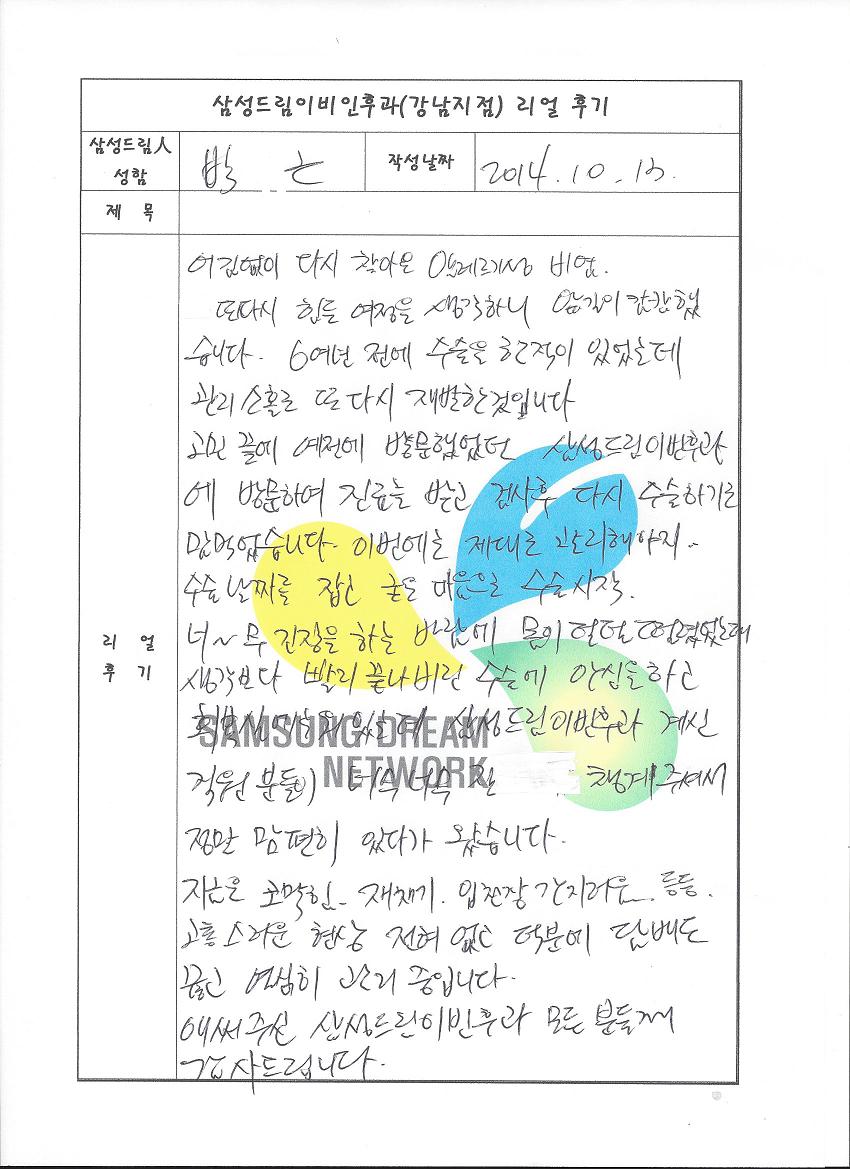 삼성드림이비인후과(강남지점) 리얼 후기
삼성드림人
성함
박
작성날짜
2014.10.13.
제 목
리 얼
후 기
어김없이 다시 찾아온 알레르기성 비염.
또다시 힘든 여정을 생각하니 앞길이 캄캄했
습니다. 6여년 전에 수술을 한적이 있었는데
관리 소홀로 또 다시 재발한것입니다
고민 끝에 예전에 방문했었던 삼성드림이빈후과
에 방문하여 진료를 받고 검사후 다시 수술하기로
맘먹었습니다. 이번에는 제대로 관리해야지.
수술 날짜를 잡고 굳은 마음으로 수술시작.
너~무 긴장을 하는 바람에 몸이 덜덜 떨렸었는데
생각보다 빨리 끝나버린 수술에 안심을하고
있는데 삼성드림이빈후과 계신
SAMSUNG DREAM
NETWORK
직원 분들이 너무 너무 잘 챙겨주셔서
정말 맘 편히 있다가 왔습니다.
지금은 코막힘. 재채기. 입천장 간지러움. 등등.
고통스러운 현상 전혀 없고 덕분에 담배도
끊고 열심히 관리 중입니다.
애써주신 삼성드림이빈후과 모든 분들께
감사드립니다.